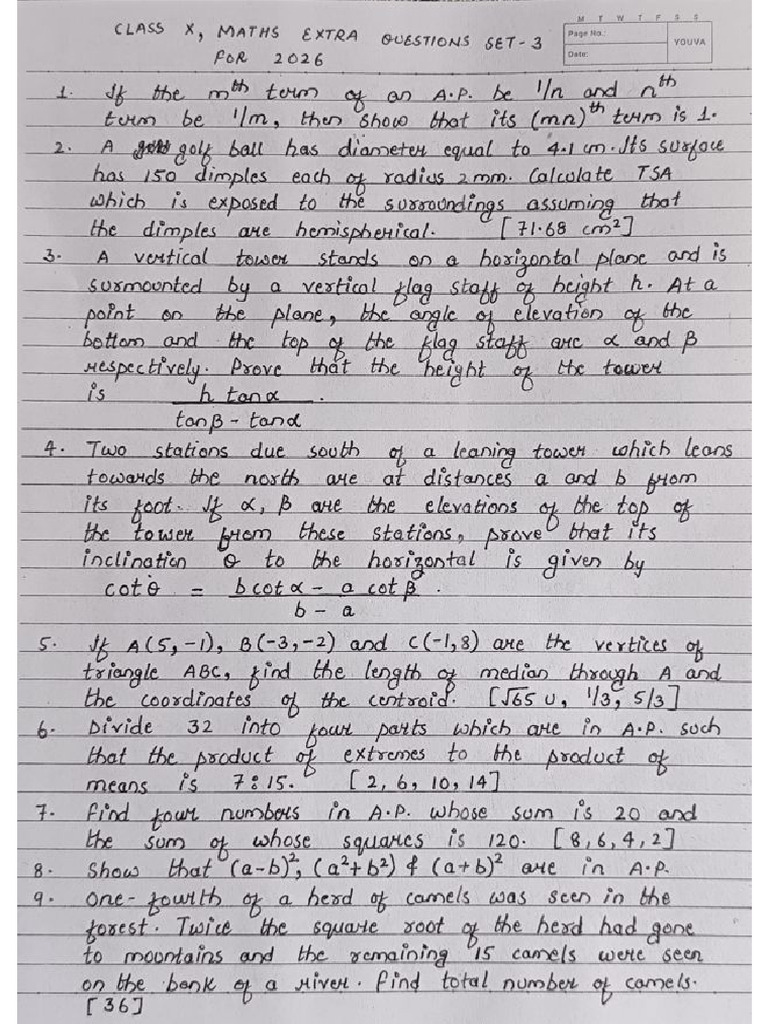 CLASS X, MATHS EXTRA QUESTIONS SET-3
FOR 2026
M T W T F S S
Page No.:
Date:
YOUVA
1. If the mth term of an A.P. be 1/n and nth
term be 1/m, then show that its (mn)th term is 1.
2. A golf ball has diameter equal to 4.1 cm. Its surface
has 150 dimples each of radius 2mm. Calculate TSA
which is exposed to the surroundings assuming that
the dimples are hemispherical. [71.68 cm²]
3. A vertical tower stands on a horizontal plane and is
surmounted by a vertical flag staff of height h. At a
point on the plane, the angle of elevation of the
bottom and the top of the flag staff are α and β
respectively. Prove that the height of the tower
is h tanα .
tanβ - tanα
4. Two stations due south of a leaning tower which leans
towards the north are at distances a and b from
its foot. If α, β are the elevations of the top of
the tower from these stations, prove that its
inclination θ to the horizontal is given by
cotθ = bcotα - a cotβ .
b - a
5. If A(5,-1), B(-3,-2) and C(-1,8) are the vertices of
triangle ABC, find the length of median through A and
the coordinates of the centroid. [√65 u, 1/3, 5/3]
6. Divide 32 into four parts which are in A.P. such
that the product of extremes to the product of
means is 7:15. [2, 6, 10, 14]
7. Find four numbers in A.P. whose sum is 20 and
the sum of whose squares is 120. [8, 6, 4, 2]
8. Show that (a-b)², (a²+b²) & (a+b)² are in A.P.
9. One-fourth of a herd of camels was seen in the
forest. Twice the square root of the herd had gone
to mountains and the remaining 15 camels were seen
on the bank of a river. Find total number of camels.
[36]